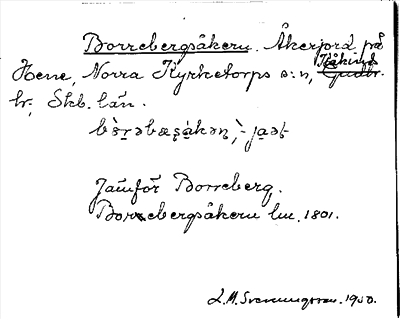 Borrebergsåkern. Åkerjord på
Hene, Norra Kyrketorps s:n, Kåkinds
hr, Skb. län.
Jämför Borreberg.
Borrebergsåkern lm. 1801.
L.M. Svennungsson. 1950.